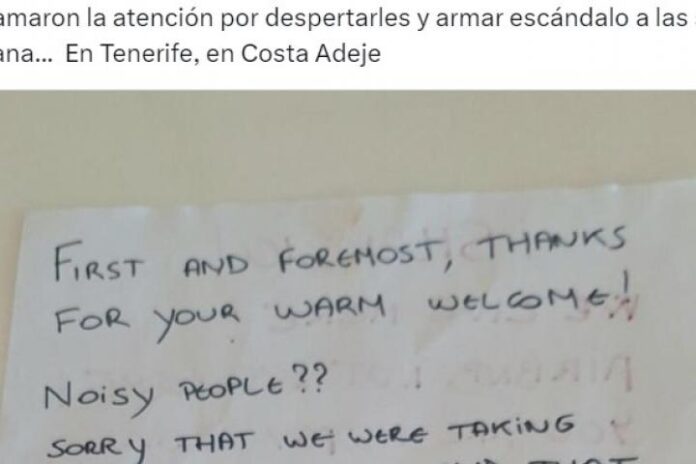 amaron la atención por despertarles y armar escándalo a las
ana... En Tenerife, en Costa Adeje
FIRST AND FOREMOST, THANKS
FOR YOUR WARM WELCOME!
NOISY PEOPLE??
SORRY THAT WE WERE TAKING